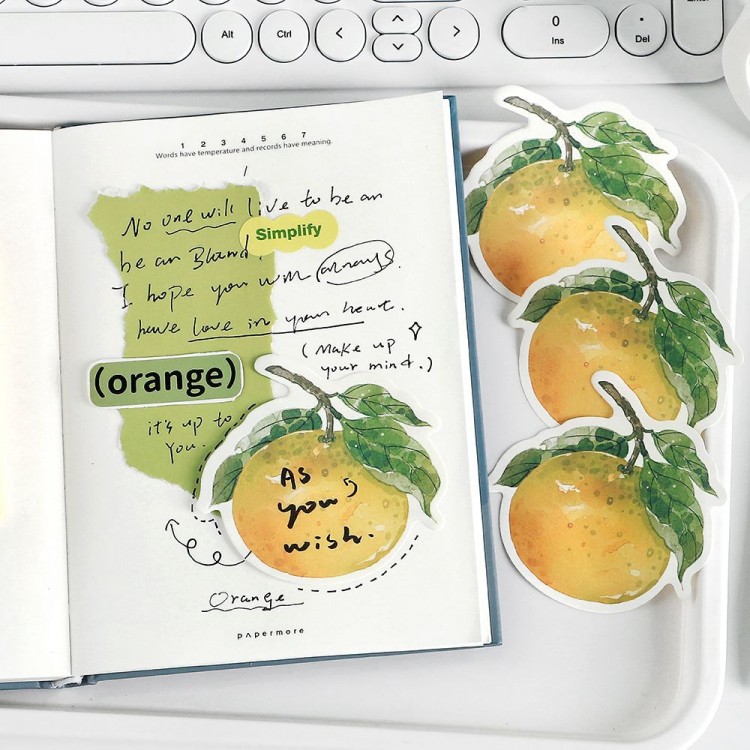 Enter
0
Ins
.
Del
Alt
Ctrl
<
>
1 2 3 4 5 6 7
Words have temperature and records have meaning.
No one will live to be an
Simplify
be an
I hope you will always.
have love in your heart.
(Make up
your mind.)
(orange)
it's up to
you.
As
your
wish.
Orange
papermore